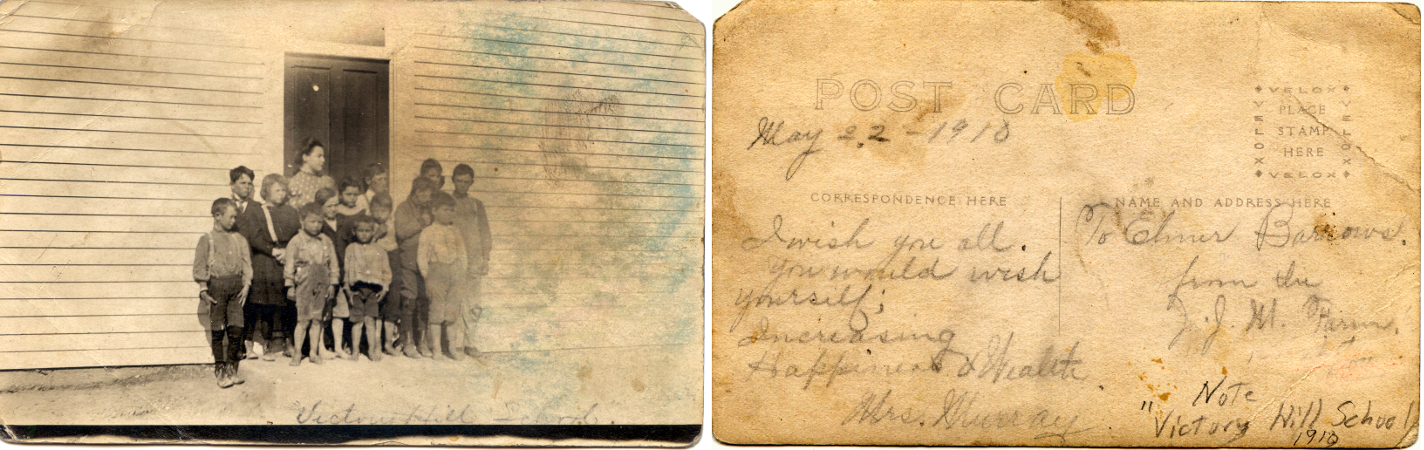 "Victory Hill School.
POST CARD
May 22-1910
VELOX
VELOX
PLACE
STAMP
HERE
VELOX
VELOX
CORRESPONDENCE HERE
NAME AND ADDRESS HERE
I wish you all
you would wish
yourself;
Increasing
Happiness & Wealth
Mrs. Murray
To Elmer Barrows.
from
Farm.
Note
"Victory Hill School
1910